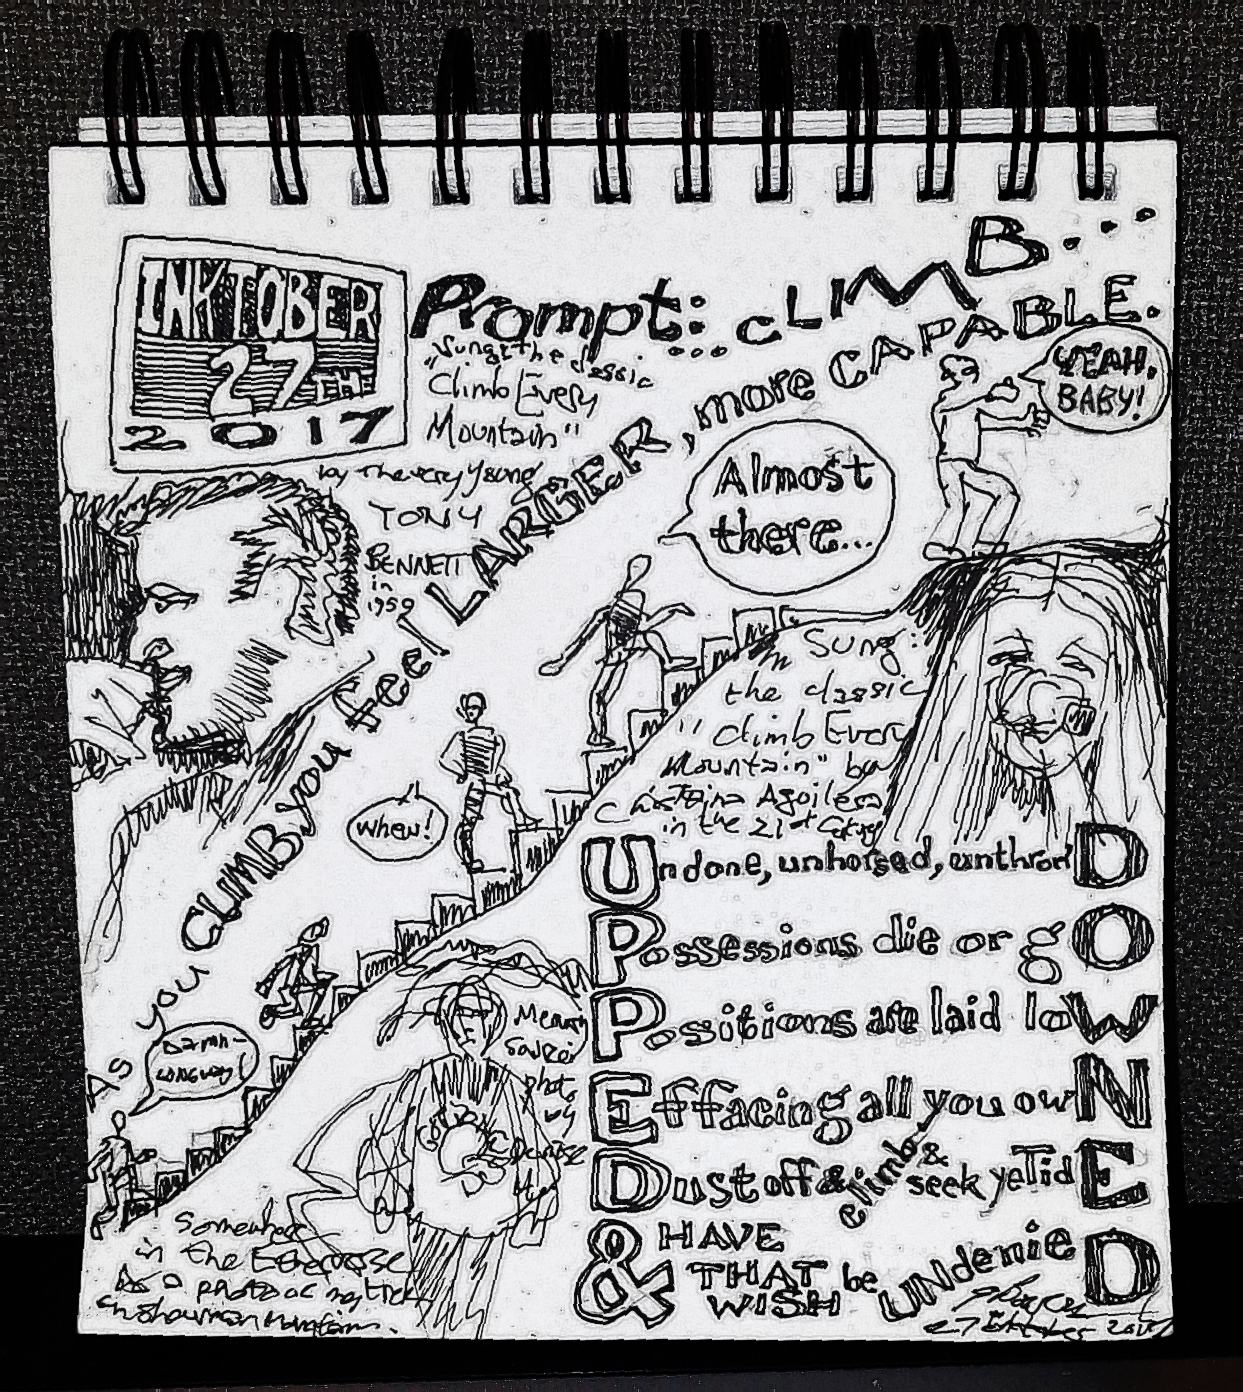 INKTOBER
27TH
2017
Prompt: ...CLIMB...
"Sung: the classic
Climb Every
Mountain"
by the very young
TONY
BENNETT
in
1959
As you CLIMB you feel LARGER, more CAPABLE.
YEAH,
BABY!
Almost
there...
Whew!
Damn-
long way!
Sung:
the classic
"Climb Every
Mountain" by
in the 21st
Undone, unhorsed, unthroned
Possessions die or go
Positions are laid low
Effacing all you own
Dust off & climb & seek ye Tide
& HAVE
THAT
WISH be UNdenied
photo
Somewhere
in the
As a photo of
27 2017